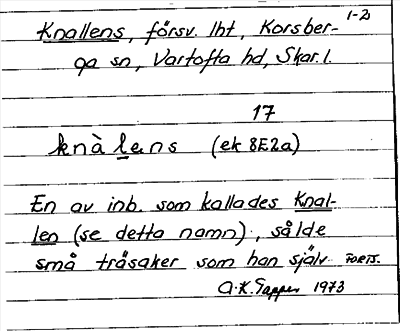 1-2
Knallens, försv. lht, Korsber-
ga sn, Vartofta hd, Skar. l.
17
knàlens (ek 8E2a)
En av inb. som kallades Knal-
len (se detta namn), sålde
små träsaker som han själv FORTS.
A.K. 1973